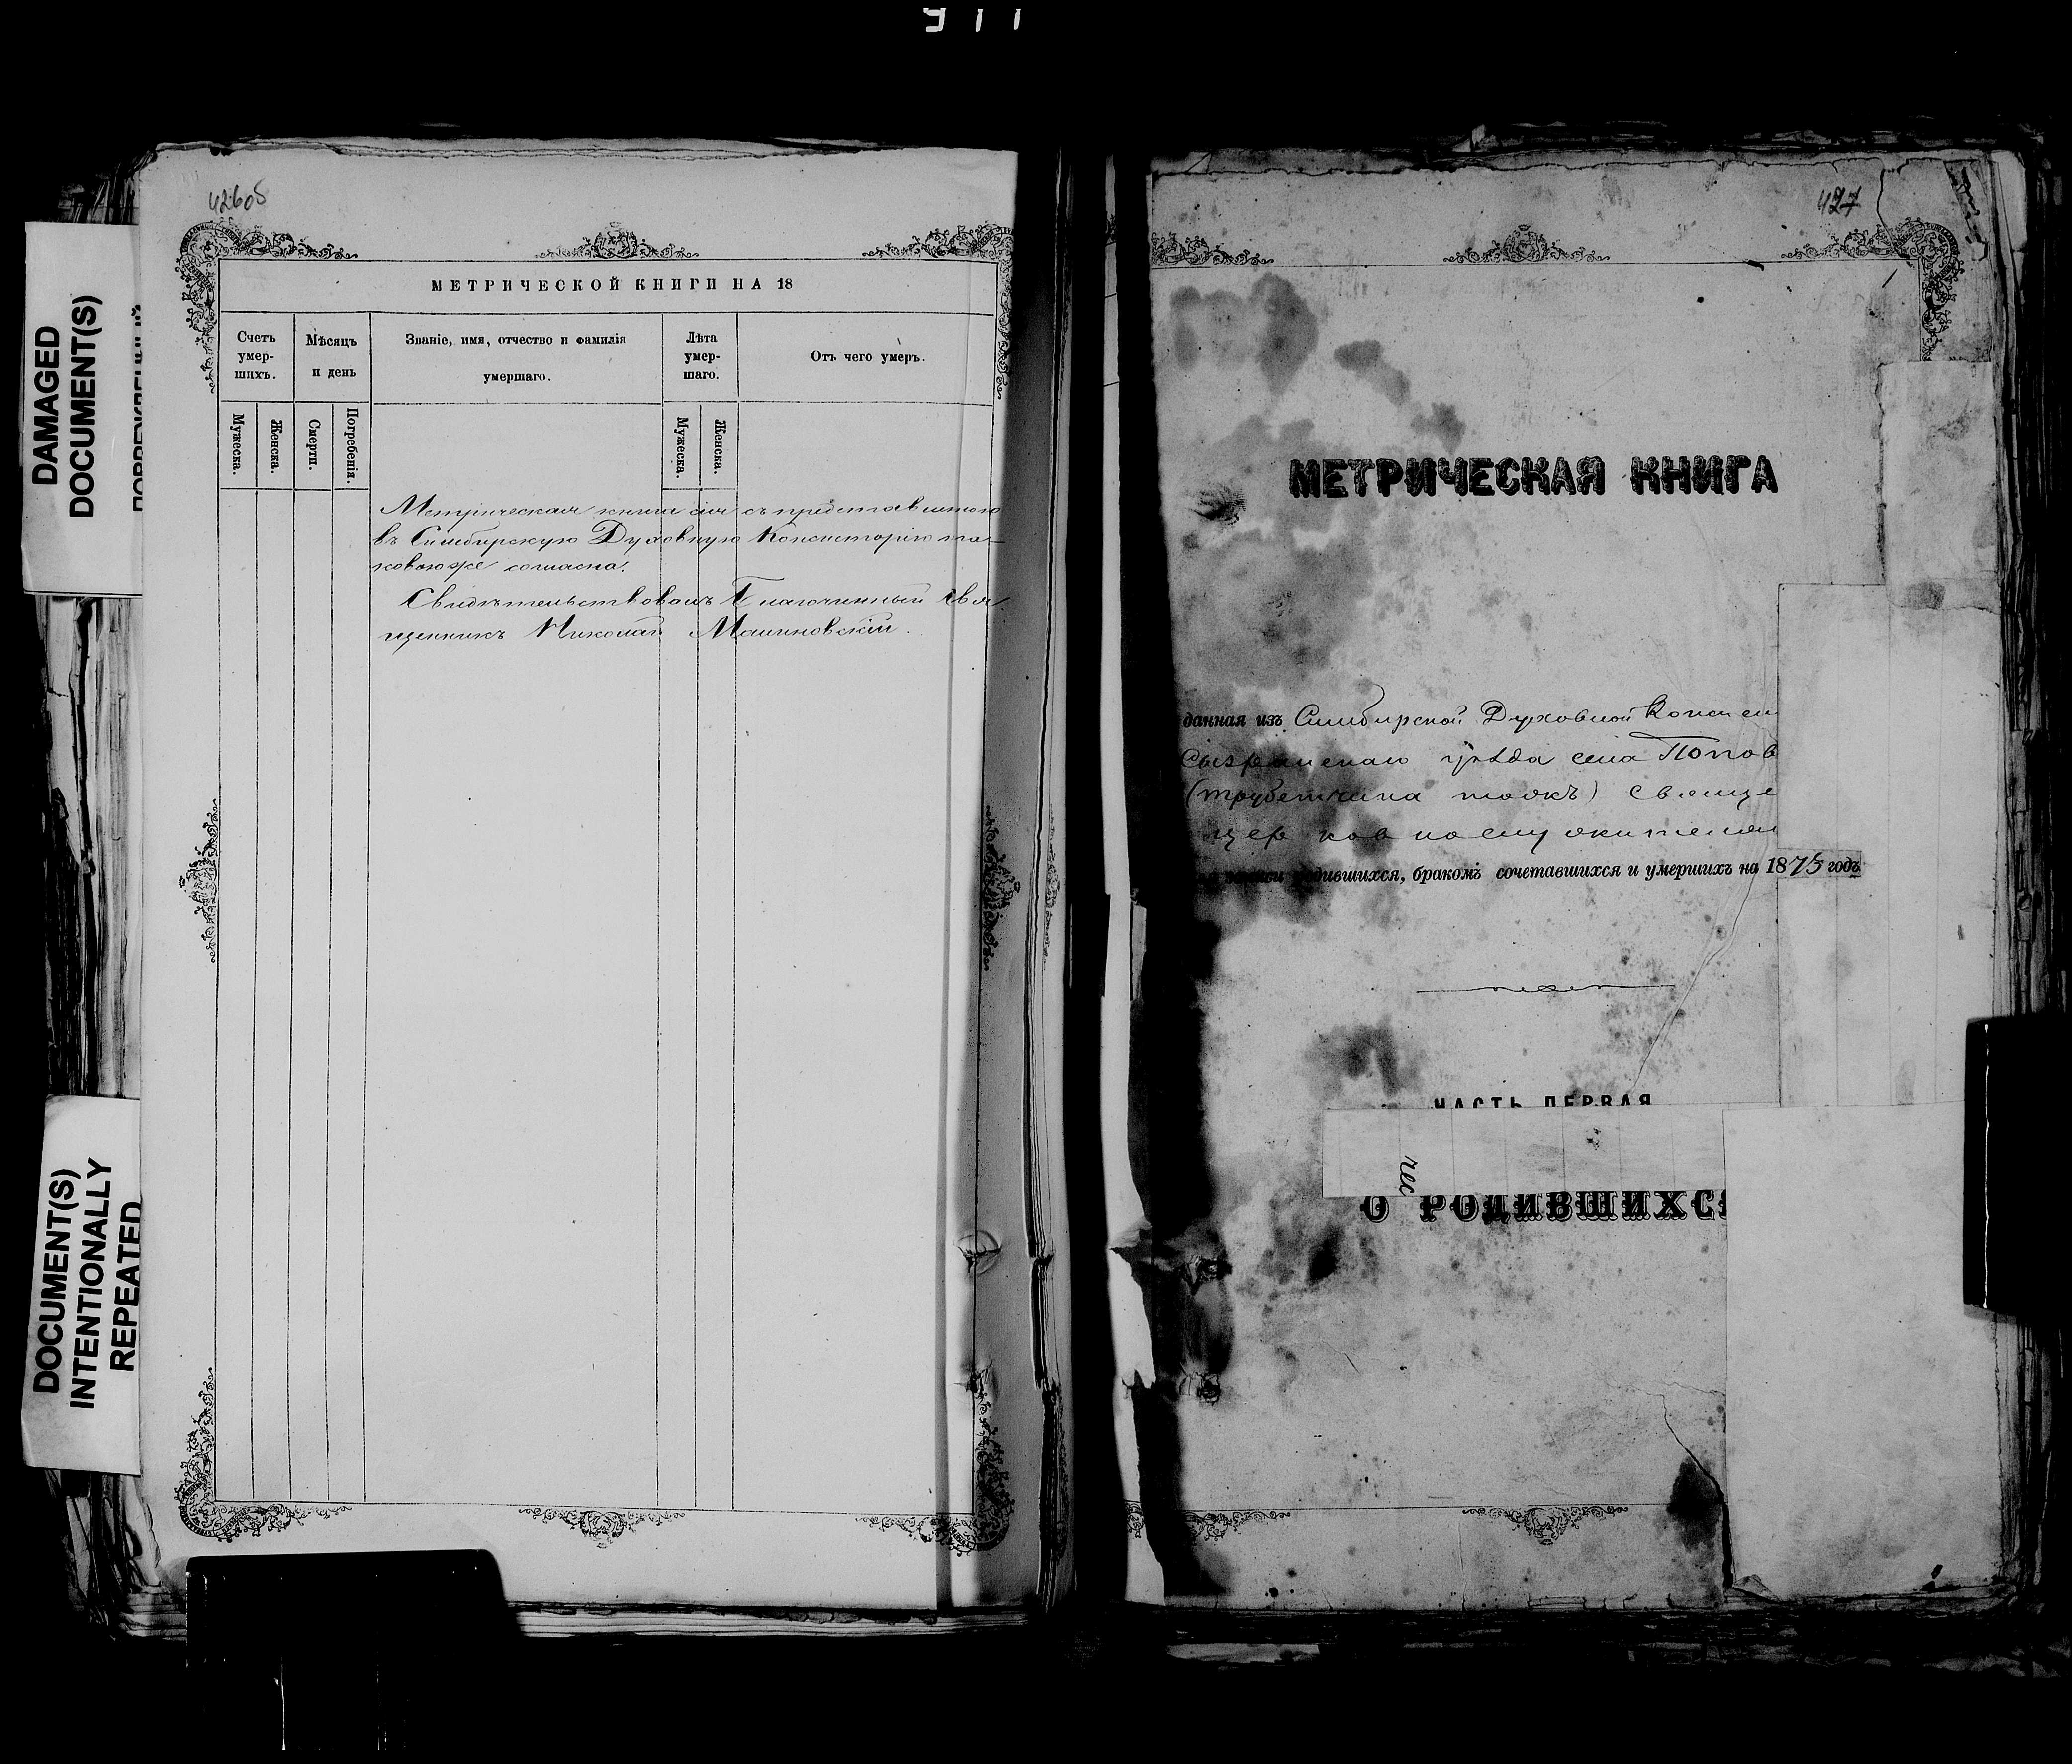 911
DAMAGED
DOCUMENT(S)
DOCUMENT(S)
INTENTIONALLY
REPEATED
426об
МЕТРИЧЕСКОЙ КНИГИ НА 18
Счетъ умер-шихъ.
Мѣсяцъ и день
Званіе, имя, отчество и фамилія умершаго.
Лѣта умер-шаго.
Отъ чего умеръ.
Мужеска.
Женска.
Смерти.
Погребенія.
Мужеска.
Женска.
Метрическая книга сія съ представленною
въ Симбирскую Духовную Консисторію та-
ковою же согласна.
Свидѣтельствовалъ Благочинный Свя-
щенникъ Николай Малиновскій.
427
МЕТРИЧЕСКАЯ КНИГА
данная изъ Симбирской Духовной Консис
Сызранскаго уѣзда села Попов
(Трубетчина тожъ) Свяще
церковнослужителям
родившихся, бракомъ сочетавшихся и умершихъ на 1875 годъ
ЧАСТЬ ПЕРВАЯ
О РОДИВШИХСЯ